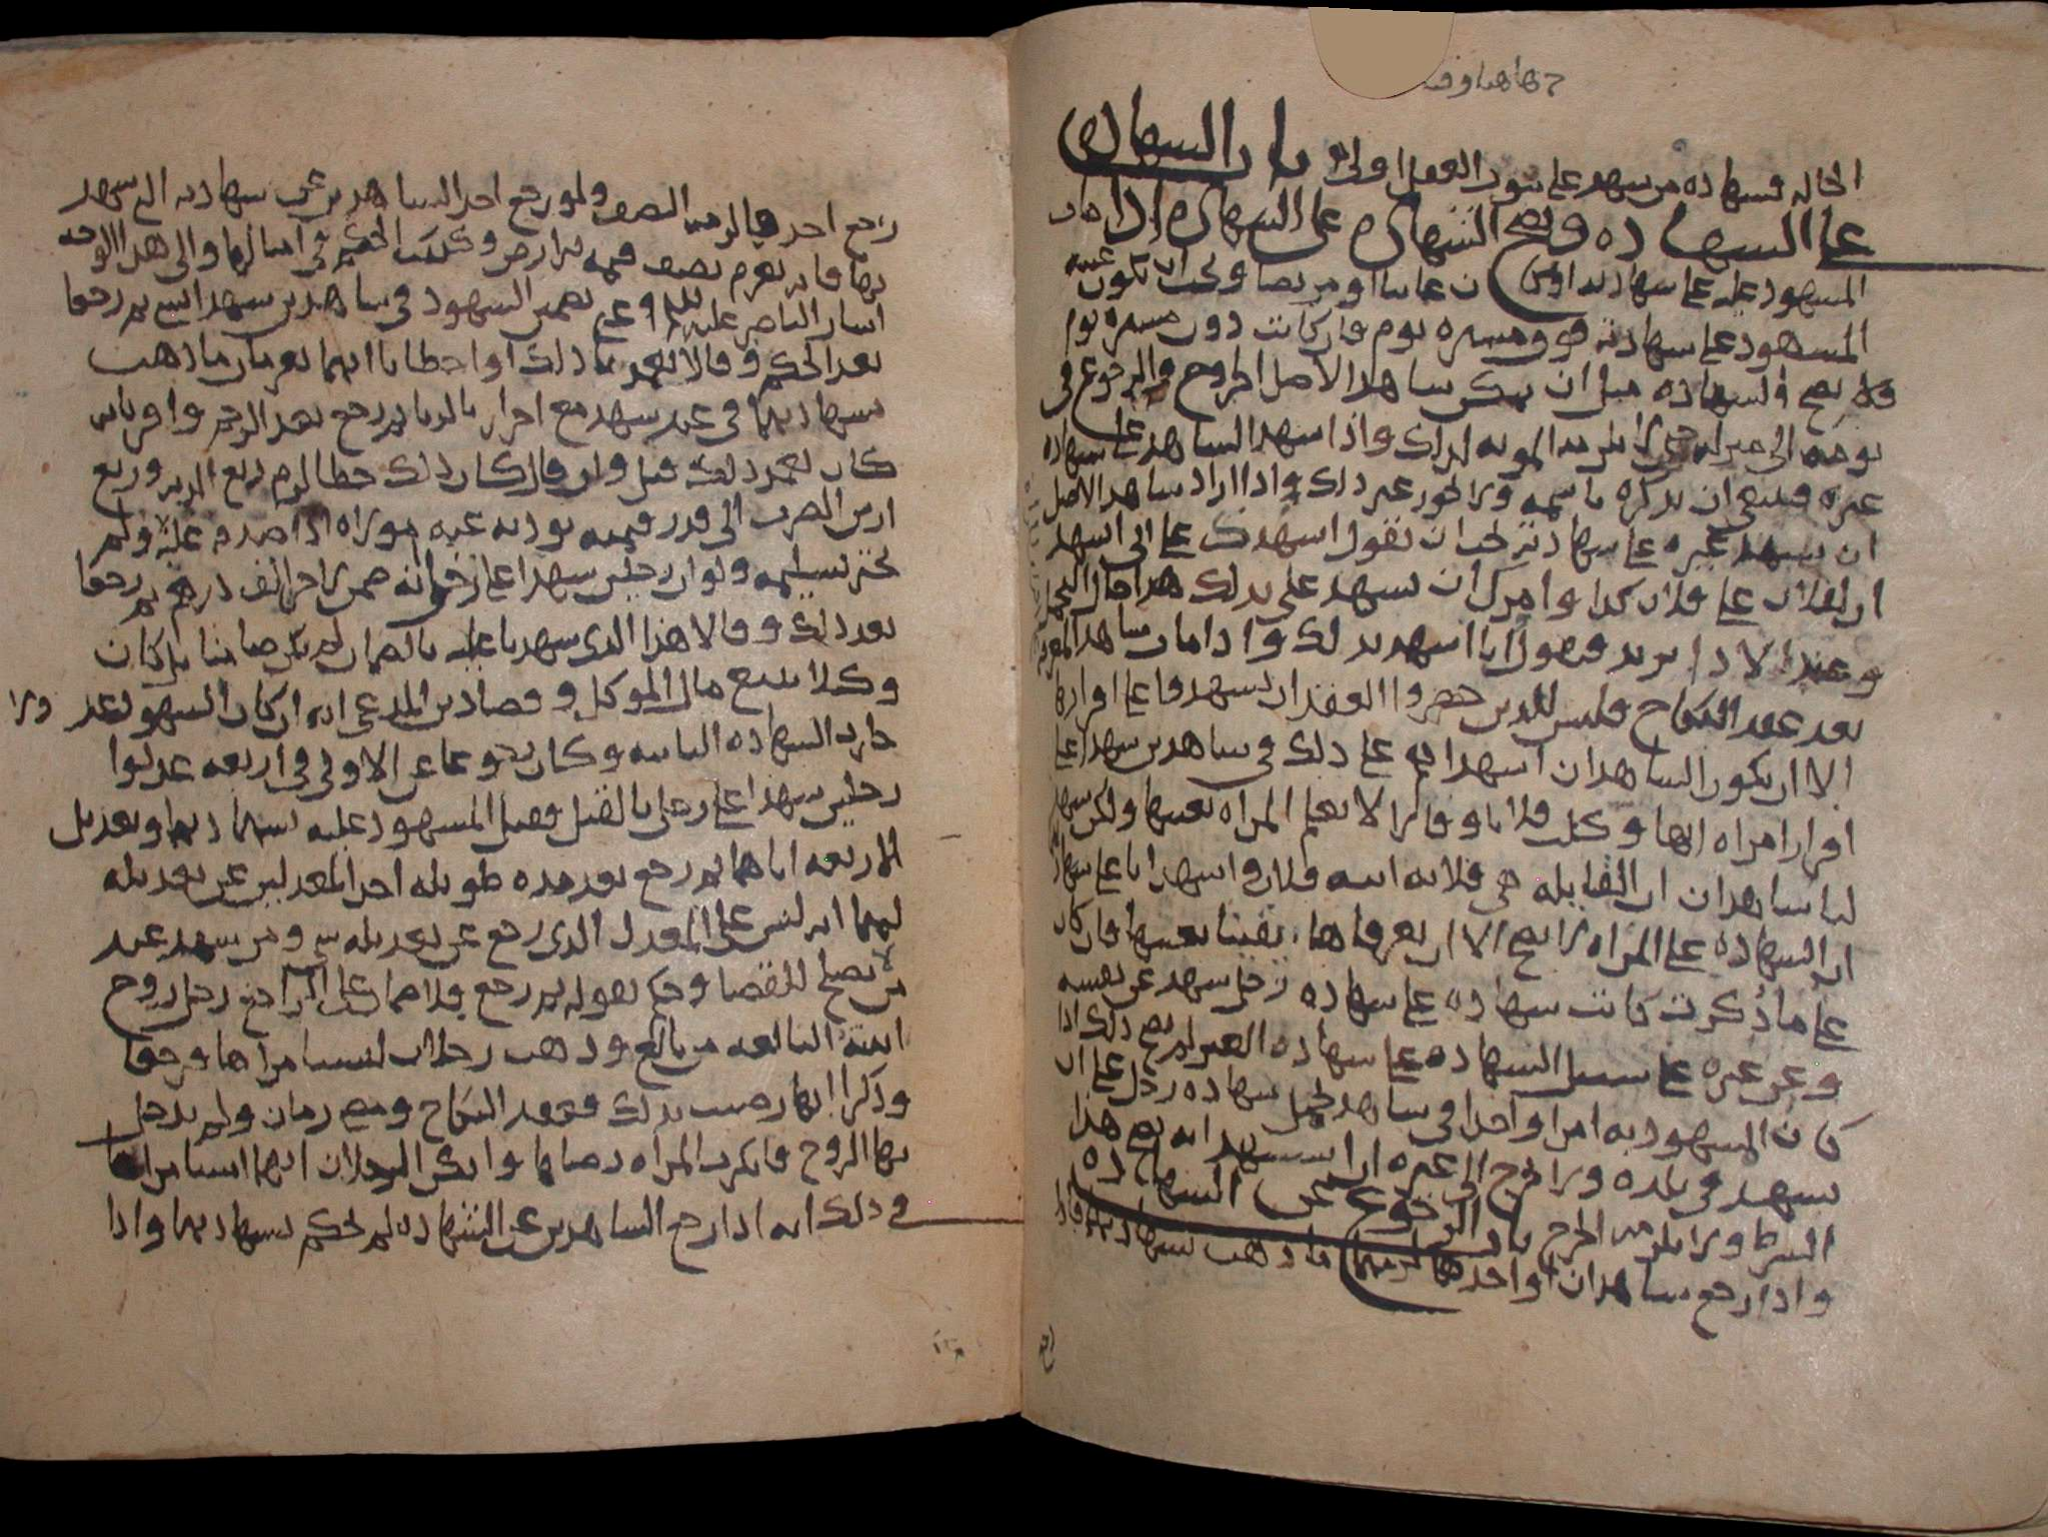 الحالة فشهادة من شهد على ثبوت العقل اولى باب الشهادة
على الشهادة وتصح الشهادة على الشهادة اذا كان
المشهود عليه على شهادته اولى ان غائبا او مريضا ويجب ان تكون غيبة
المشهود على شهادته فوق مسيرة يوم فان كانت دون مسيرة يوم
فلا تصح والشهادة قبل ان شاهد الاصل الخروج والرجوع في
يومه الى منزله لا يلزمه المونه لذلك واذا شهد الشاهد على شهادة
غيره فينبغي ان يذكره باسمه ولا يجوز غير ذلك واذا اراد شاهد الاصل
ان يشهد غيره على شهادته يجب ان يقول اشهدك على اني اشهد
ان لفلان على فلان كذا وامرك ان تشهد على بذلك هذا حال التحمل
وعند الادا يزيد فيقول انا اشهد بذلك واذا مات شاهد
بعد عقد النكاح فليس للذين حضروا العقد ان يشهدوا على اقرارها
الا ان يكون الشاهدان اشهداهم على ذلك في شاهدين شهدا على
اقرار امراة انها وكلت فلانا وقالا لا نعلم المراة بعينها ولكن شهد
لنا شاهدان ان القايلة هي فلانة ابنة فلان واشهدانا على
ان الشهادة على المراة لا تصح الا ان يعرفاها يقينا بعينها فان كان
على ما ذكرت كانت شهادة على شهادة رجل شهد عن نفسه
وعن غيره على سبيل الشهادة على شهادة الغير لم يصح ذلك اذا
كان المشهود به امرا واحدا في شاهد تحمل شهادة رجل على ان
يشهد في بلده ولا يخرج الى غيره ان استشهد انه يصح هذا
الشرط ولا يلزمه الخرج باب الرجوع عن الشهادة
واذا رجع شاهدان او احدهما ما ذهب بشهادتهما فاذا
رجع احدهما لزمه النصف ولو رجع احد الشاهدين عن شهادته التي شهد
بها فانه يغرم نصف قيمة الارض وكذلك الحكم في امثالها والى هذا الوجه
اشار الناصر عليلم وعن بعضهم الشهود في شاهدين شهدا ثم رجعا
بعد الحكم وقالا تعمدنا ذلك او اخطانا انهما يغرمان ما ذهب
بشهادتهما في عبد شهد مع احرار بالزنا ثم رجع بعد الرجم واقر بانه
كان تعمد ذلك قتل وان كان ذلك خطا لزم ربع الدية وربع
ارش الضرب الى قدر قيمته يوديه عنه مولاه اذا صدقه عليه ولم
يختر تسليمه ولو ان رجلين شهدا على رجل انه ضمن لاخر الف درهم ثم رجعا
بعد ذلك وقالا هذا الذي شهدنا عليه بالضمان لم يكن ضامنا بل كان
وكيلا ببيع مال الموكل وقصادين المدعي انه ان كان الشهود عد ولا
جازت الشهادة الثانية وكان رجوعا عن الاولى في اربعة عدلوا
رجلين شهدا على رجل بالقتل فقتل المشهود عليه بشهادتهما وتعديل
الاربعة اياهما ثم رجع بعد مدة طويلة احد المعدلين عن تعديله
لهما انه ليس على المعدل الذي رجع عن تعديله شي ومن شهد عند
من لا يصلح للقضا وحكم بقوله ثم رجع فلا ضمان على الراجع رجل زوج
ابنته البالغة من بالغ وذهب رجلان ليستامراها فرجعا
وذكرا انها رضيت بذلك فعقد النكاح ومضى زمان ولم يدخل
بها الزوج فانكرت المراة رضاها وانكر الرجلان انهما استامراها
في ذلك انه اذا رجع الشاهدين عن الشهادة لم يحكم بشهادتهما واذا